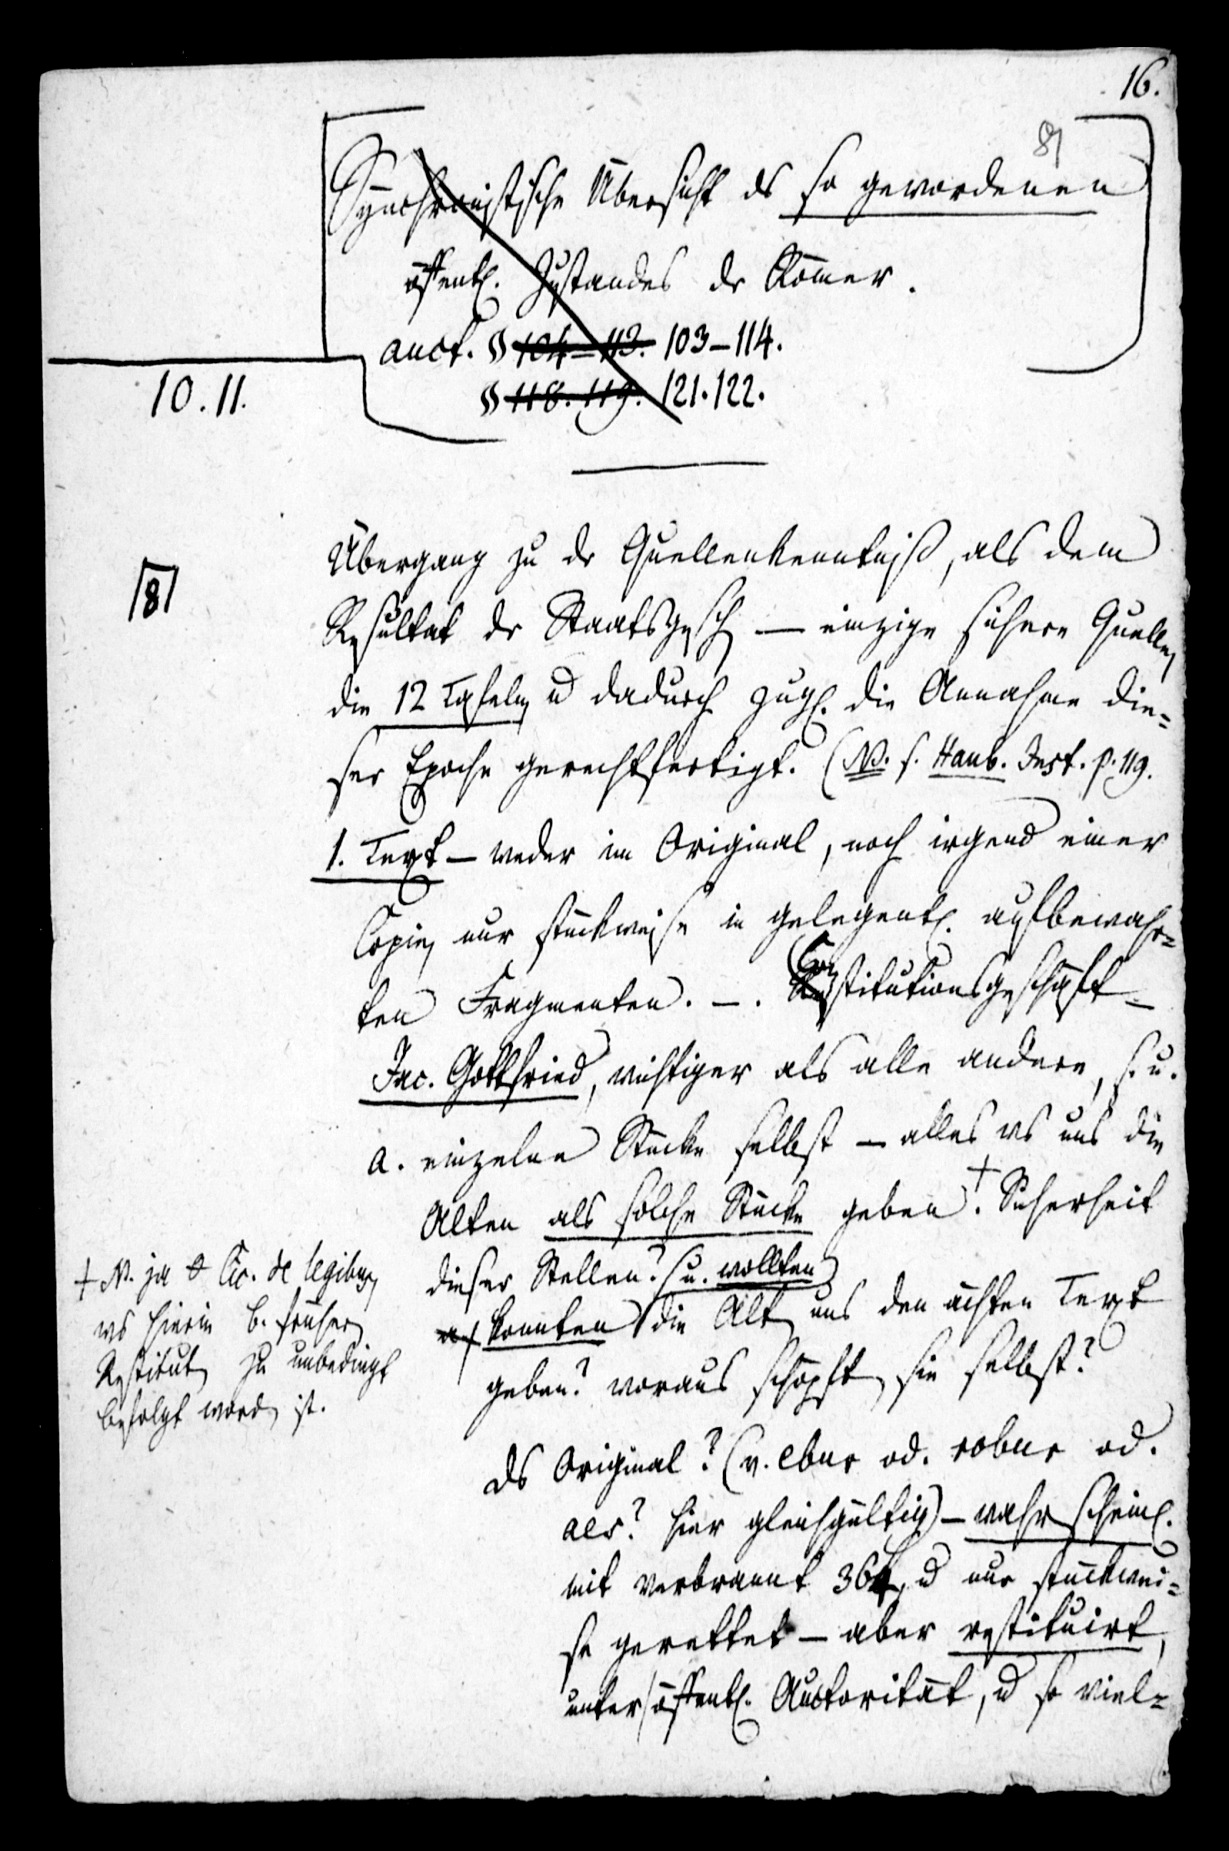 16.
81
Synchronistische Übersicht ds so gewordenen
öffentl. Zustandes der Römer.
auct. § 104-113. 103-114.
10.11.
§ 118.119. 121.122.
Übergang zu dr Quellenkenntniß, als dem
8
Resultat dr Staatsgesch — einzige sichere Quelle,
die 12 Tafeln u dadurch zugl. die Annahme die-
ser Epoche gerechtfertigt. (NB. s. Haub. Inst. p. 119.
1. Text — weder im Original, noch irgend einer
Copie, nur stückweise in gelegentl. aufbewahr-
ten Fragmenten. —. Constitutionsgeschäft —
Jac. Gottfried, wichtiger als alle andere, s. u.
a. einzelne Stücke selbst — alles ws uns die
Alten als solche Stücke geben †. Sicherheit
dieser Stellen? (u. wollten)
konnten die Alt. uns den ächten Text
geben? woraus schöpft. sie selbst?
† N. ja Cic. de legibus,
ws hierin b. früher
Restitut. zu unbedingt
befolgt word. ist.
ds Original? (v. ebur od. robur od.
aer? hier gleichgültig) — wahrscheinl.
mit verbrannt 364, u nur stückwei-
se gerettet — aber restituirt,
unter öffentl. Auctorität, u so viel-